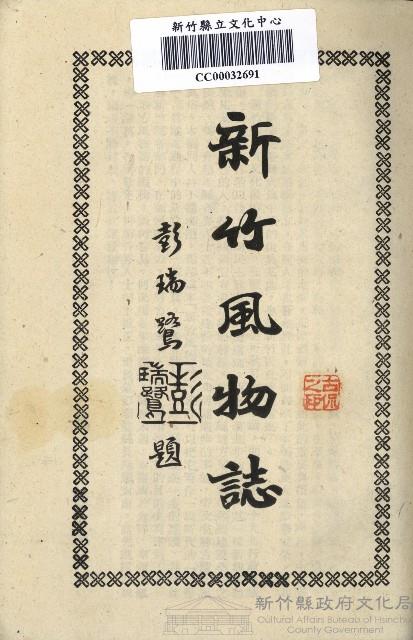 新竹縣立文化中心
CC00032691
新竹風物誌
彭瑞鷺
題
新竹縣政府文化局
Cultural Affairs Bureau of Hsinchu
County Government